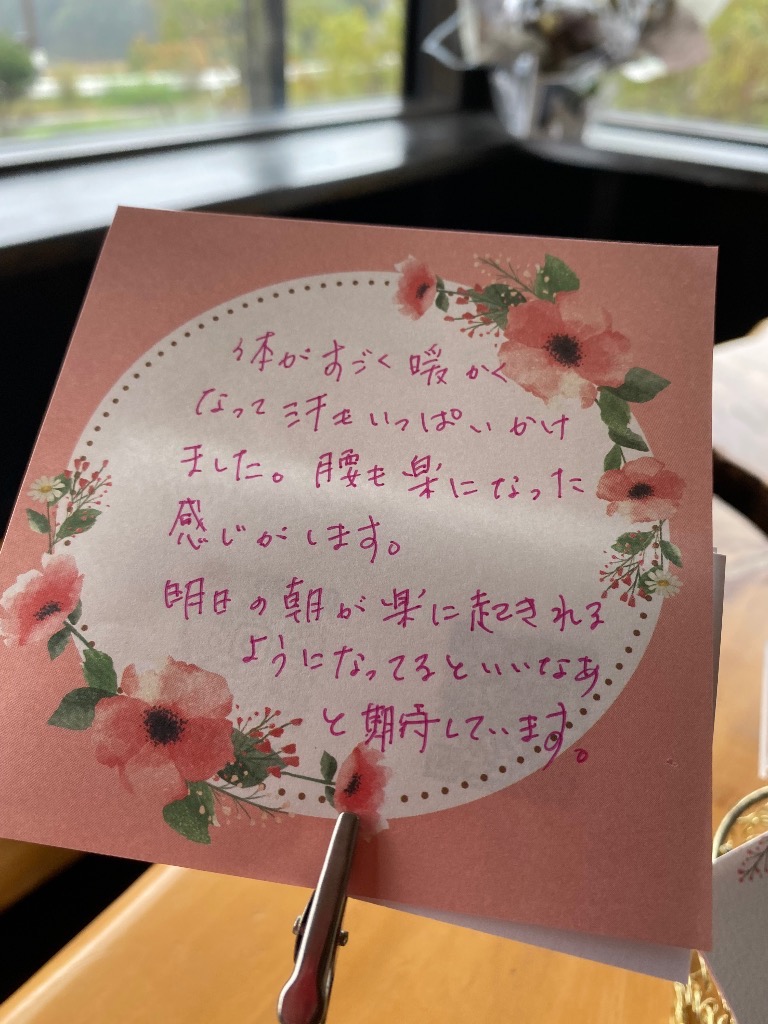 体がすごく暖かく
なって汗もいっぱいかけ
ました。腰も楽になった
感じがします。
明日の朝が楽に起きれる
ようになってるといいなあ
と期待しています。